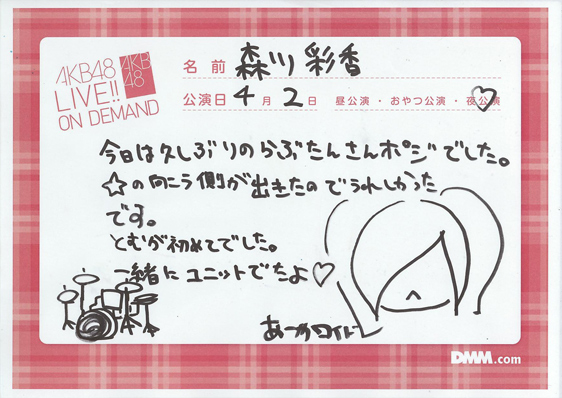 AKB48
LIVE!!
ON DEMAND
AKB
48
名前 森川彩香
公演日 4月2日 昼公演・おやつ公演・夜公演
今日は久しぶりのらぶたんさんポジでした。
☆の向こう側が出きたのでうれしかった
です。
とむが初めてでした。
一緒にユニットでたよ♡
DMM.com